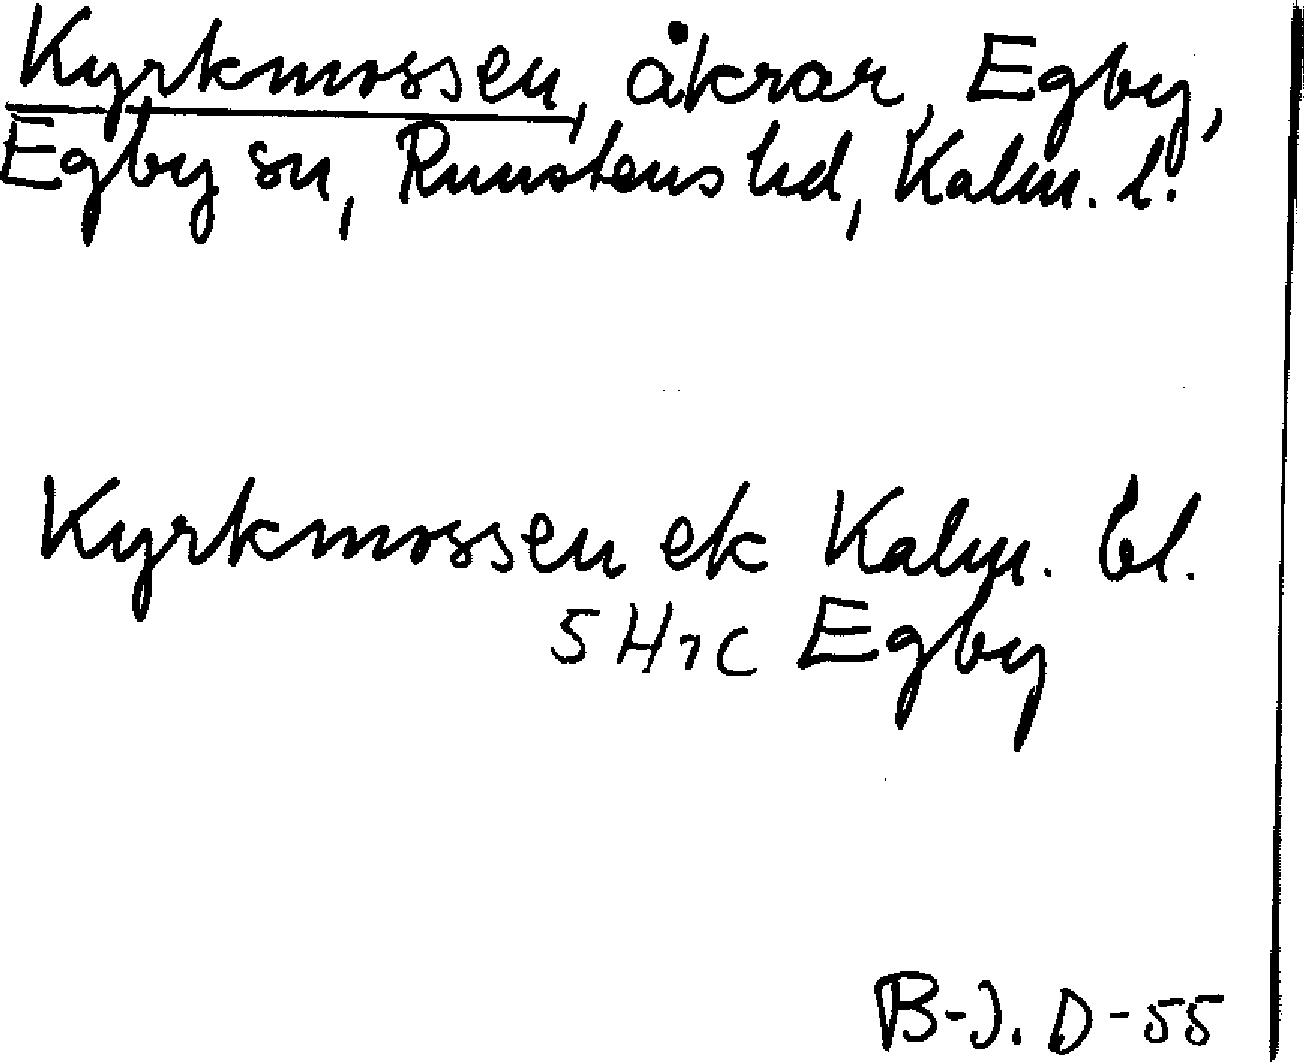 Kyrkmossen, åkrar, Egby,
Egby sn, Runstens hd, Kalm. l.
Kyrkmossen ek Kalm. bl.
5H7c Egby
B-J. D-55